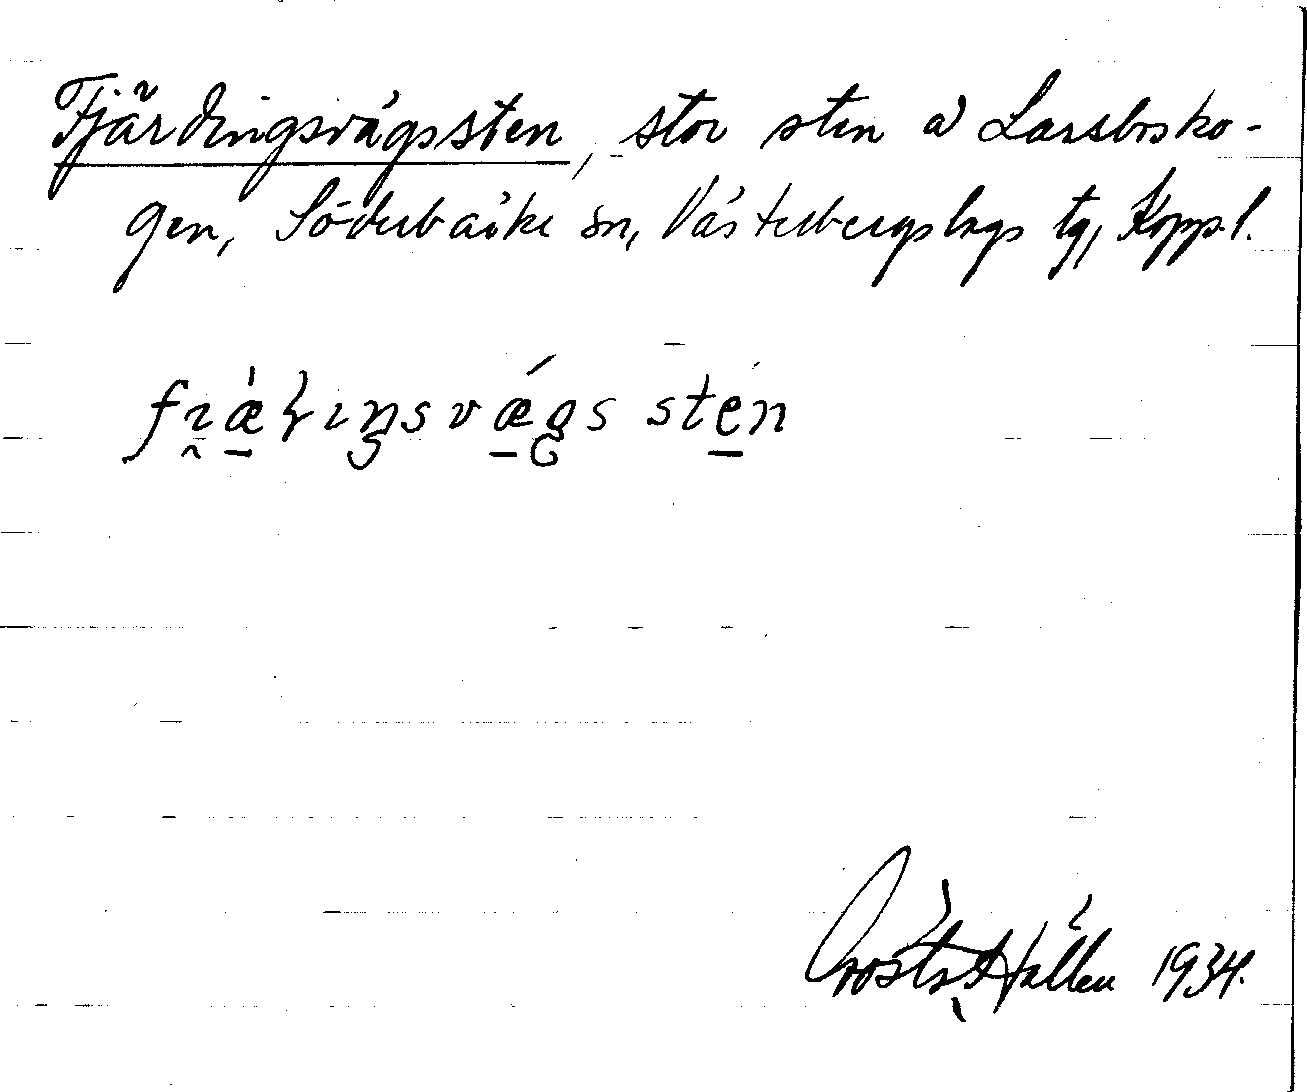 Fjärdingsvägssten, stor sten å Larsbosko-
gen, Söderbärke sn, Västerbergslags tg, Kopp.l.
fıæ̀ɽıŋsvǽgs stén
Hållen 1934.